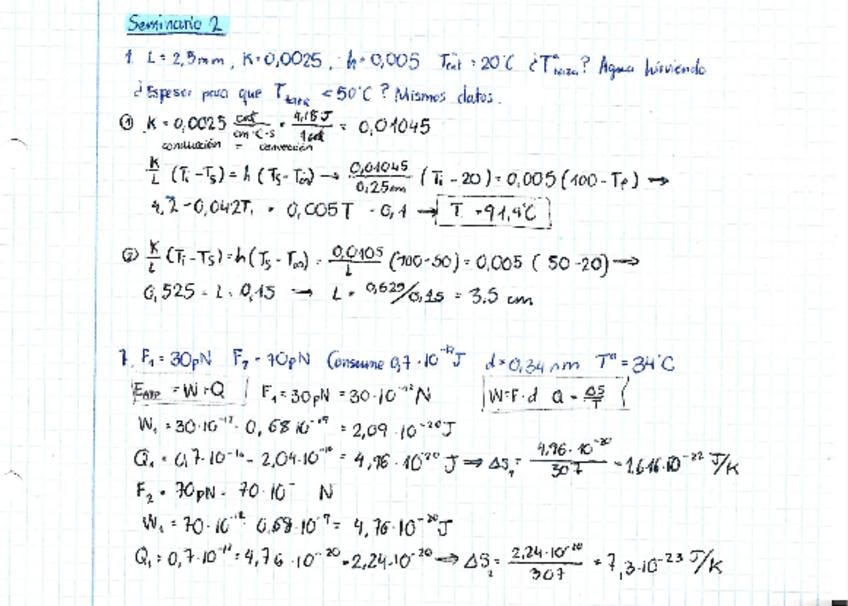 Seminario 2
1. L = 2,5mm, K=0,0025, h=0,005 Text = 20°C ¿Tª taza? Agua hirviendo
¿Espesor para que T taza < 50°C? Mismos datos.
① K = 0,0025 cal/cm·°C·s · 4,18J/1cal = 0,01045
conducción = convección
K/L (Ti - Ts) = h (Ts - T∞) → 0,01045/0,25cm (Ti - 20) = 0,005 (100 - Tp) →
4,2 - 0,042T = 0,005T - 0,1 → T = 91,4°C
② K/L (Ti - Ts) = h (Ts - T∞) = 0,0105/L (100-50) = 0,005 (50-20) →
0,525 = L · 0,15 → L = 0,525/0,15 = 3,5 cm
7. F1 = 30pN F2 = 70pN Consume 0,7·10⁻¹⁹J d = 0,34nm Tª = 34°C
EATP = W + Q F1 = 30pN = 30·10⁻¹²N W = F·d Q = ΔS/T
W1 = 30·10⁻¹² · 0,68·10⁻⁹ = 2,09·10⁻²⁰J
Q1 = 0,7·10⁻¹⁹ - 2,04·10⁻²⁰ = 4,96·10⁻²⁰ J ⇒ ΔS1 = 4,96·10⁻²⁰/307 = 1,616·10⁻²² J/K
F2 = 70pN = 70·10⁻ N
W1 = 70·10⁻¹² · 0,68·10⁻⁹ = 4,76·10⁻²⁰J
Q1 = 0,7·10⁻¹⁹ = 4,76·10⁻²⁰ = 2,24·10⁻²⁰ ⇒ ΔS2 = 2,24·10⁻²⁰/307 = 7,3·10⁻²³ J/K